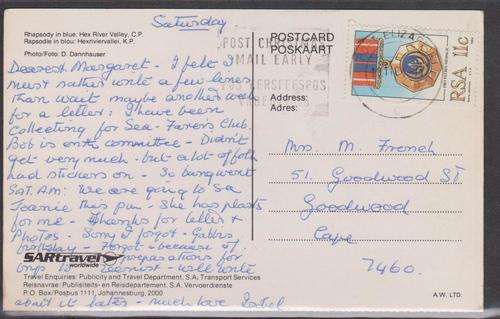 Saturday
Rhapsody in blue: Hex River Valley, C.P.
Rapsodie in blou: Hexriviervallei, K.P.
Photo/Foto: D. Dannhauser
Dearest Margaret - I felt I
must rather write a few lines
than wait maybe another week
for a letter: I have been
Collecting for Sea-Farers Club.
Bob is on its committee - Didn't
get very much - but a lot of folk
had stickers on - So bung went
Sat. A.M: We are going to see
Jeanie this p.m - She has plants
for me - Thanks for letter &
Photos - Sorry I forgot -
birthday - Forgot - because of
preparations for
- will write
about it later - much love
SARtravel
worldwide
Travel Enquiries: Publicity and Travel Department, S.A. Transport Services
Reisnavrae: Publisiteits- en Reisdepartement. S.A. Vervoerdienste
P O Box/Posbus 1111, Johannesburg, 2000
POSTCARD
POSKAART
POST
MAIL EARLY
RSA 11c
Address:
Adres:
Mrs. M. French
51. Goodwood ST
Goodwood
Cape
7460.
A.W. LTD.